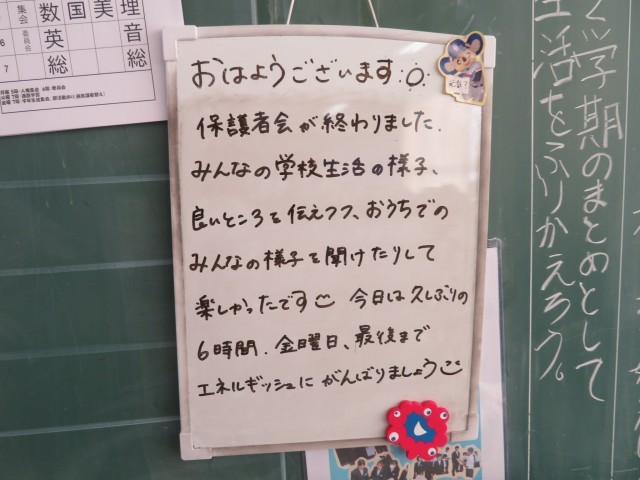 おはようございます
保護者会が終わりました.
みんなの学校生活の様子、
良いところを伝えつつ、おうちでの
みんなの様子を聞けたりして
楽しかったです 今日は久しぶりの
6時間. 金曜日、最後まで
エネルギッシュに がんばりましょう
元気?
学期のまとめとして
生活をふりかえろう。
集会
数 国 美 理
6
英 音
7
総 総